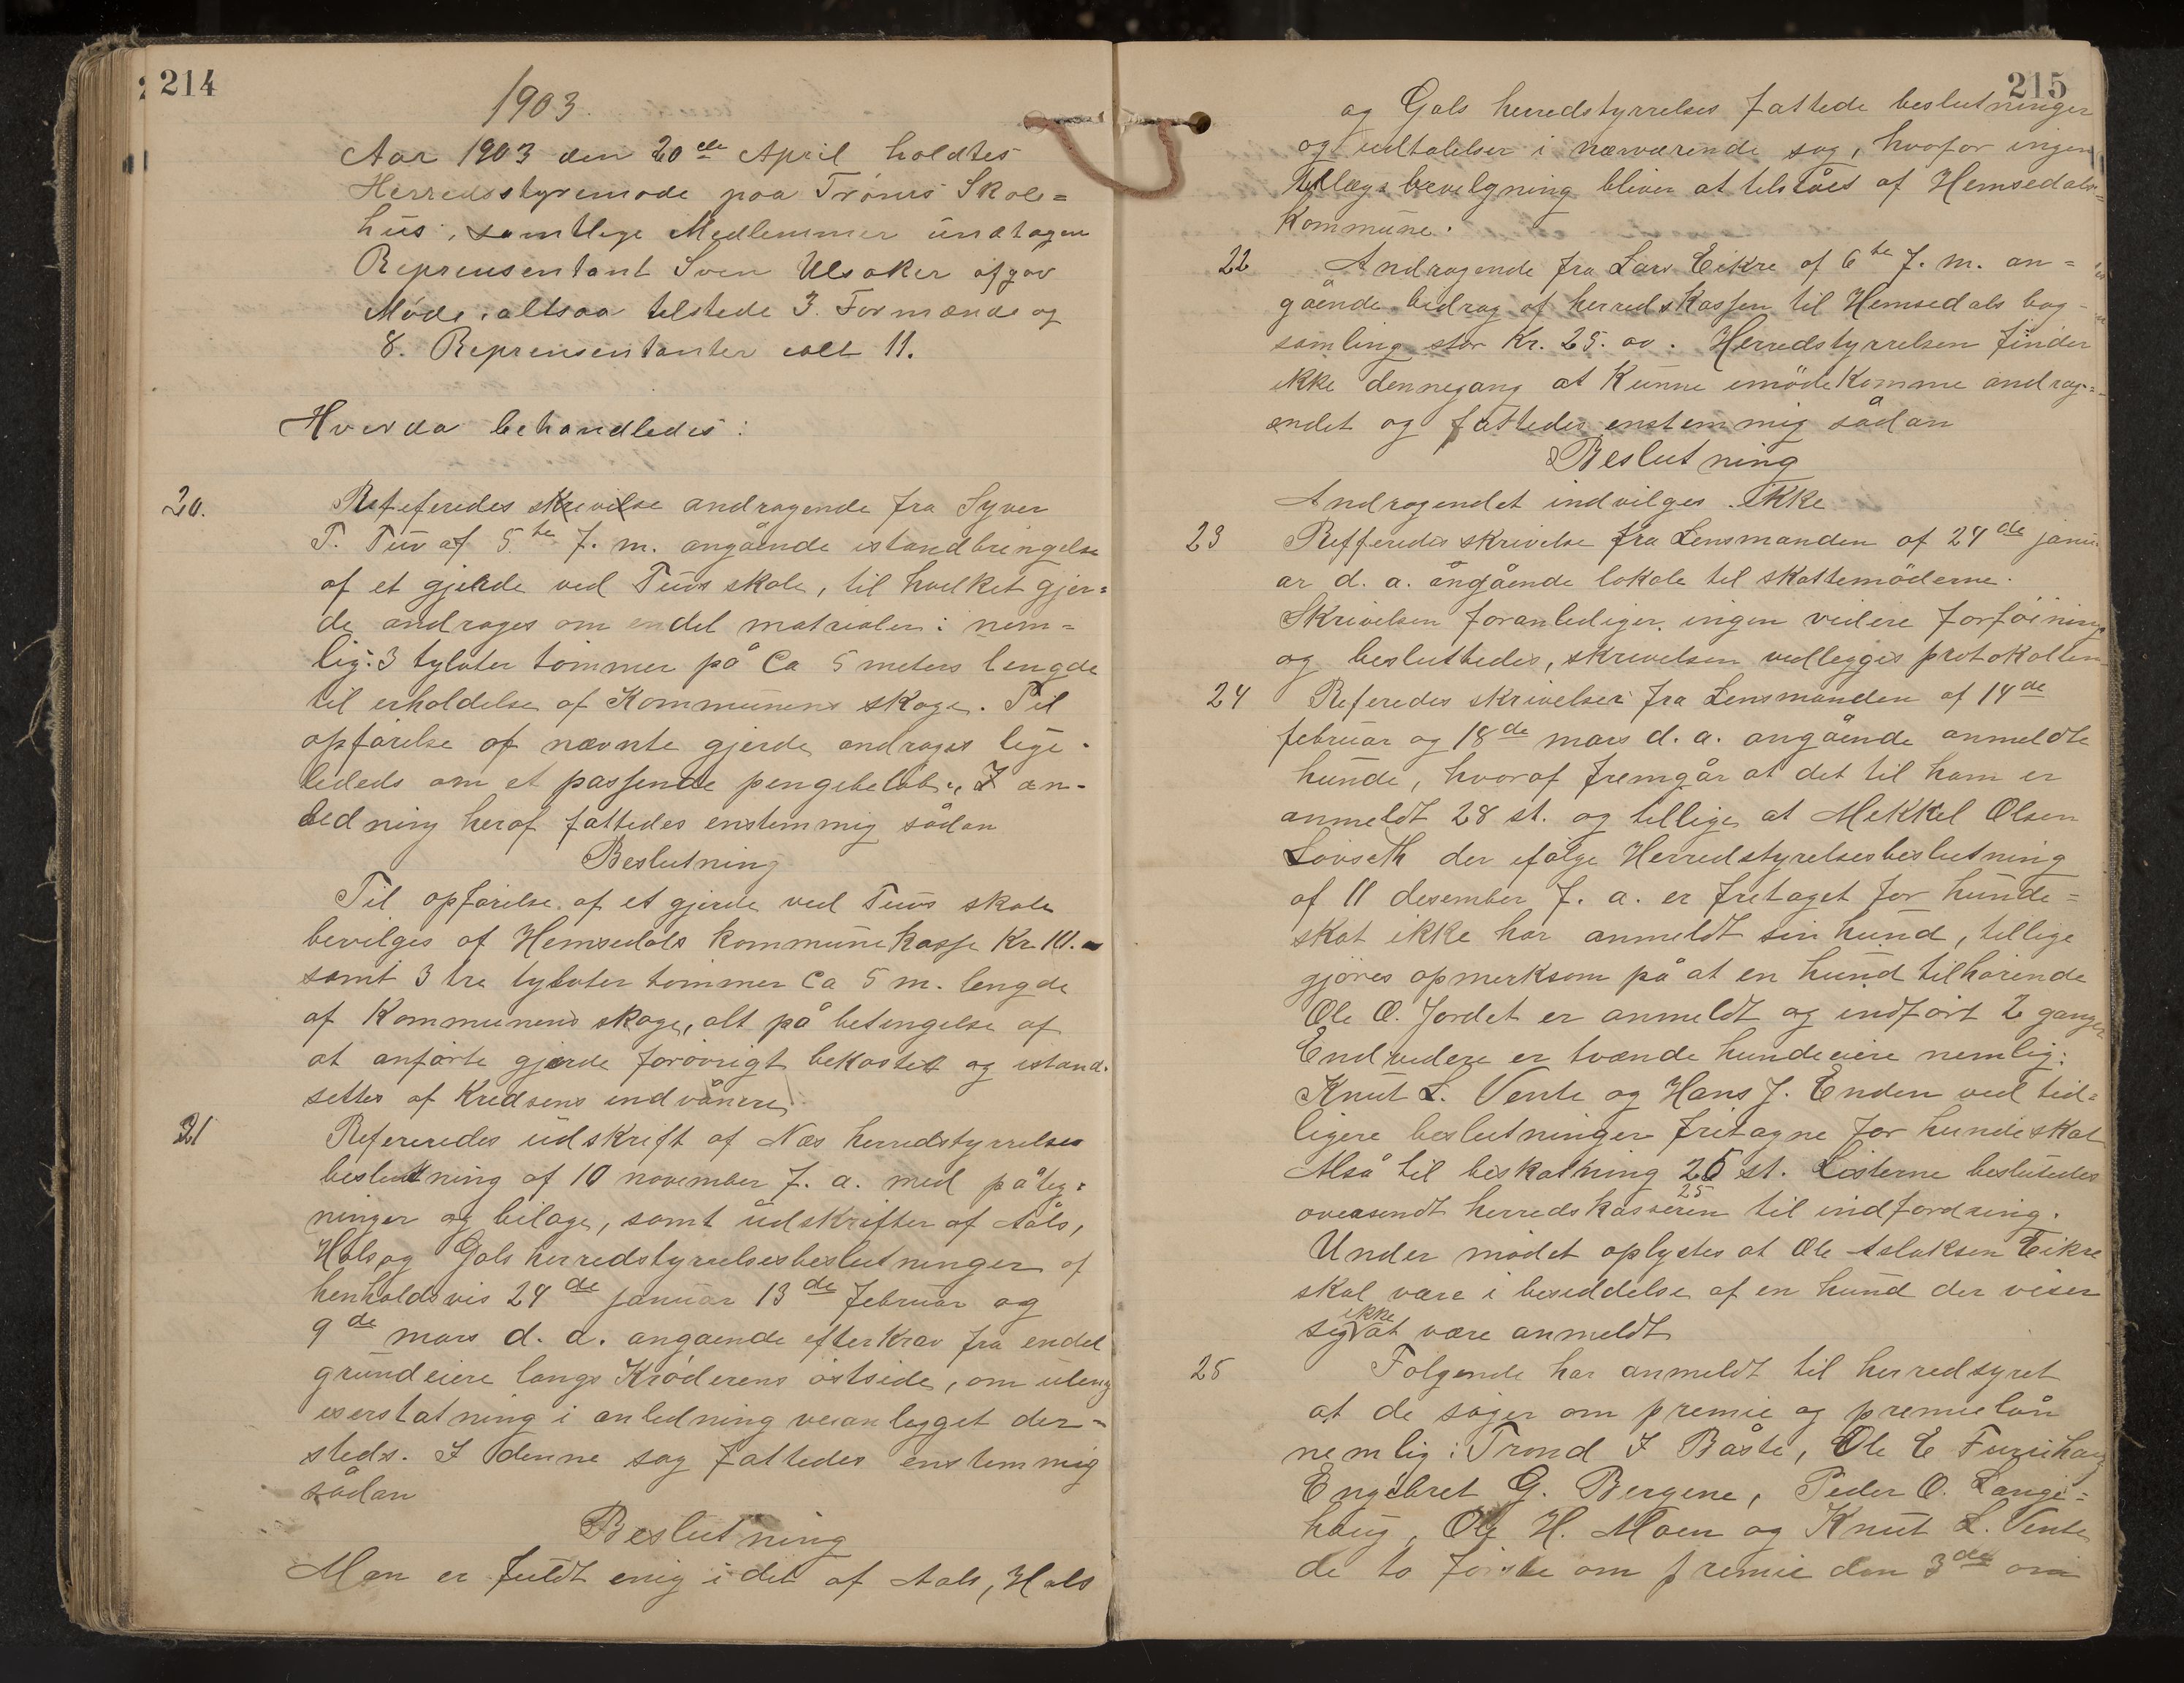 214
1903.
Aar 1903 den 20de April holdtes
Herredsstyremøde paa Trøims Skole=
hus, samtlige Medlemmer undtagen
Reprensentant Sven Ulsaker afgav
Møde, altsaa tilstede 3. Formænd og
8. Reprensentanter ialt 11.
Hverda behandledes:
20. Refeferedes skrivelse andragende fra Syver
T. Tuv af 5te f. m. angående istandbringelse
af et gjerde ved Tuvs skole, til hvilket gjer=
de andrages om endel matrialer: nem=
lig: 3 tylvter tømmer på Ca 5 meters lengde
til erholdelse af Kommunens skoge. Til
opførelse af nævnte gjerde andrages lige-
lededs om et passende pengebeløb. I an-
ledning heraf fattedes enstemmig sådan
Beslutning
Til opførelse af et gjerde ved Tuvs skole
bevilges af Hemsedals kommunekasse Kr. 10.
samt 3 tre tylvter tømmer Ca 5 m. lengde
af Kommunens skoge, alt på betingelse af
at anførte gjerde forøvrigt bekostet og istand-
settes af Kredsens indvånere.
21 Refereredes udskrift af Nes herredstyrrelses
beslutning af 10 november f. a. med påteg=
ninger og bilage, samt udskrifter af Aals,
Hols og Gols herredstyrrelsesbeslutninger af
henholdsvis 24de januar 13de februar og
9de mars d. a. angaende efterkrav fra endel
grundeiere langs Krøderens østside, om ulemp
eserstatning i anledning veianlegget der=
steds. I denne sag fattedes enstemmig
sådan
Beslutning
Man er fuldt enig i det af Aals, Hols
215
og Gols herredstyrrelses fattede beslutninger
og udtalelser i nærværende sag, hvofor ingen
tillægsbevilgning bliver at tilståes af Hemsedals=
Kommune.
22 Andragende fra Lars Eikre af 6te f. m. an=
gående bidrag af herredskassen til Hemsedals bog-
samling stor Kr. 25. oo. Herredstyrrelsen finder
ikke dennegang at kunne imødekomme andrag=
endet og fattedes enstemmig sådan
Beslutning
Andragendet indvilges ikke
23 Refferedes skrivelse fra Lensmanden af 24de janu
ar d. a. angående lokale til skattemøderne.
Skrivelsen foranlediger ingen videre forføining
og besluttedes, skrivelsen vedlegges protokollen
24 Referedes skrivelser fra Lensmanden af 14de
februar og 18de mars d. a. angående anmeldte
hunde, hvoraf fremgår at det til ham er
anmeldt 28 st. og tillige at Mekkel Olsen
Løvseth der ifølge Herredstyrelsesbeslutning
af 11 desember f. a. er fretaget for hunde=
skat ikke har anmeldt sin hund, tillige
gjøres opmerksom på at en hund tilhørende
Ole O. Jordet er anmeldt og indført 2 ganger
Endvidere er tvænde hundeeiere nemlig:
Knut L. Vente og Hans J. Enden ved tid=
ligere beslutninger fritagne for hundeskat
Alså til beskatning 25 st. Listerne beslutedes
25
oversendt herredskasseren til indfordring.
Under mødet oplystes at Ole Aslaksen Eikre
skal være i besiddelse af en hund der viser
sig ikke at være anmeldt
25 Følgende har anmeldt til herredsyret
at de søger om premie og premielån
nemlig: Trond I Båste, Ole E Furuhaug
Engebret G. Bergene, Peder O. Lange=
haug, Ole H. Moen og Knut L. Vente
de to første om premie den 3de om